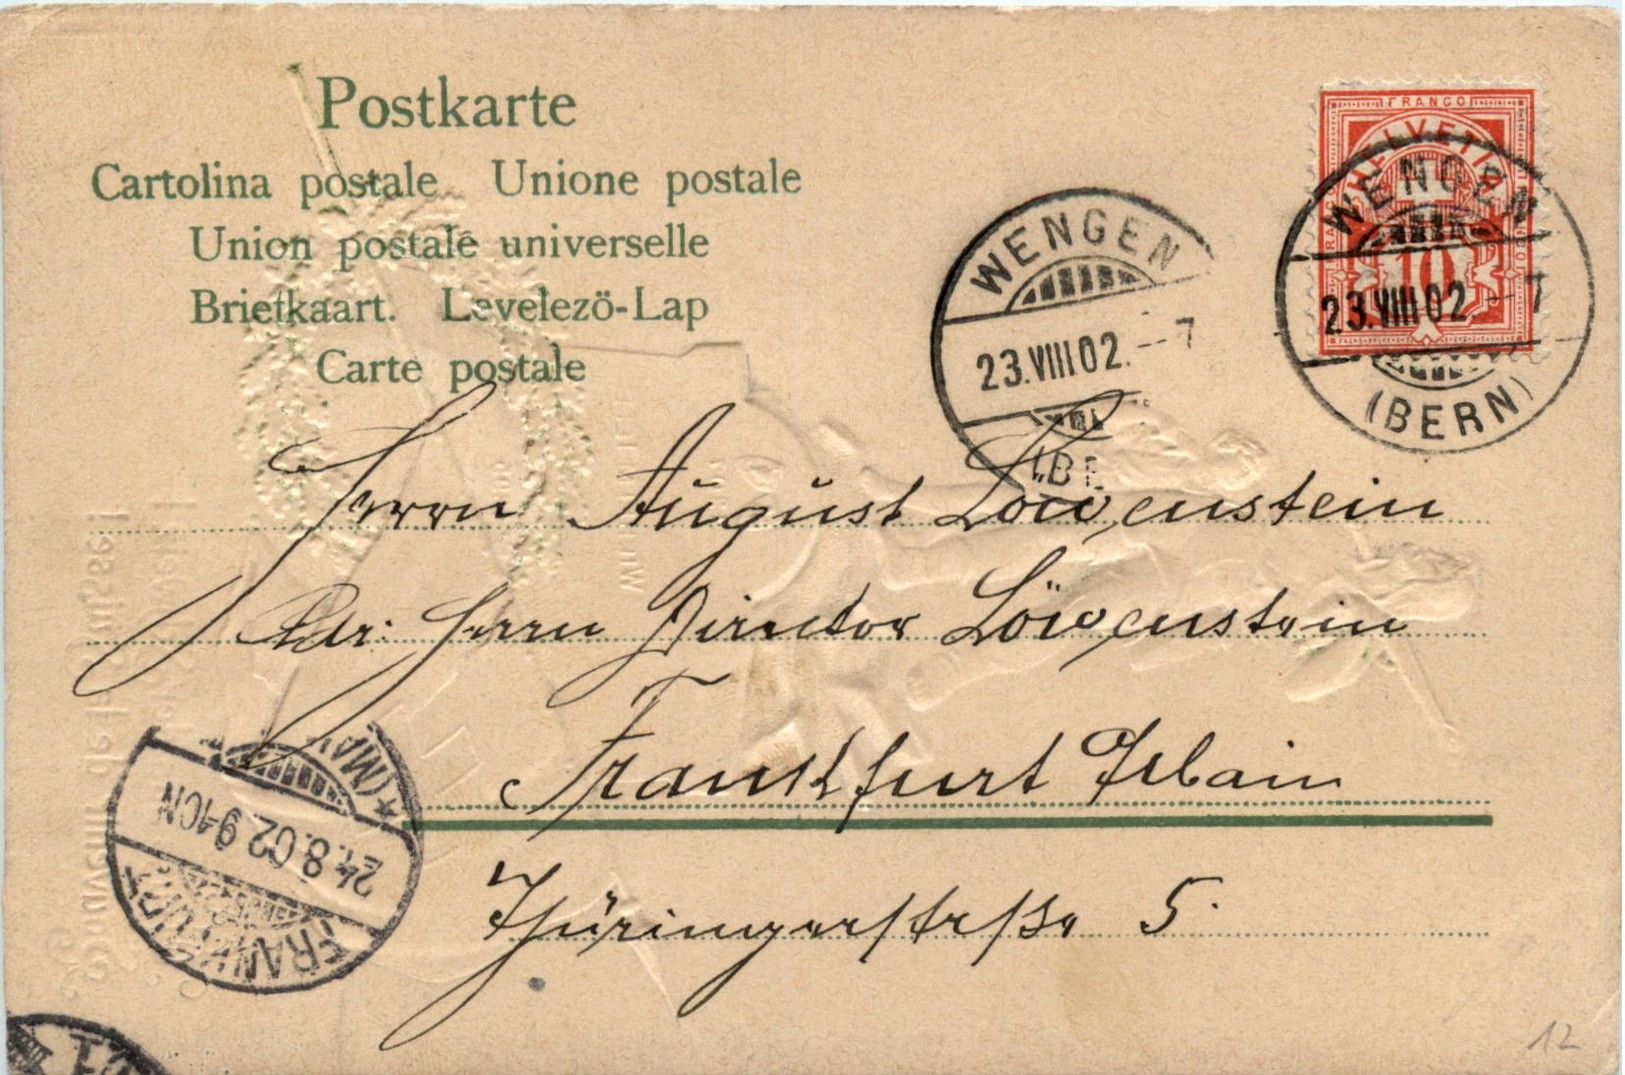 Postkarte
Cartolina postale Unione postale
Union postale universelle
Briefkaart. Levelezö-Lap
Carte postale
FRANCO
HELVETIA
10
WENGEN
23.VIII 02. -7
(BERN)
WENGEN
23.VIII 02. --7
(BE
Herrn August Löwenstein
Adr: Herrn Director Löwenstein
Frankfurt Main
Thüringerstrße 5.
FRANKFURT
24.8.02. 9-10N
*(MAI
12